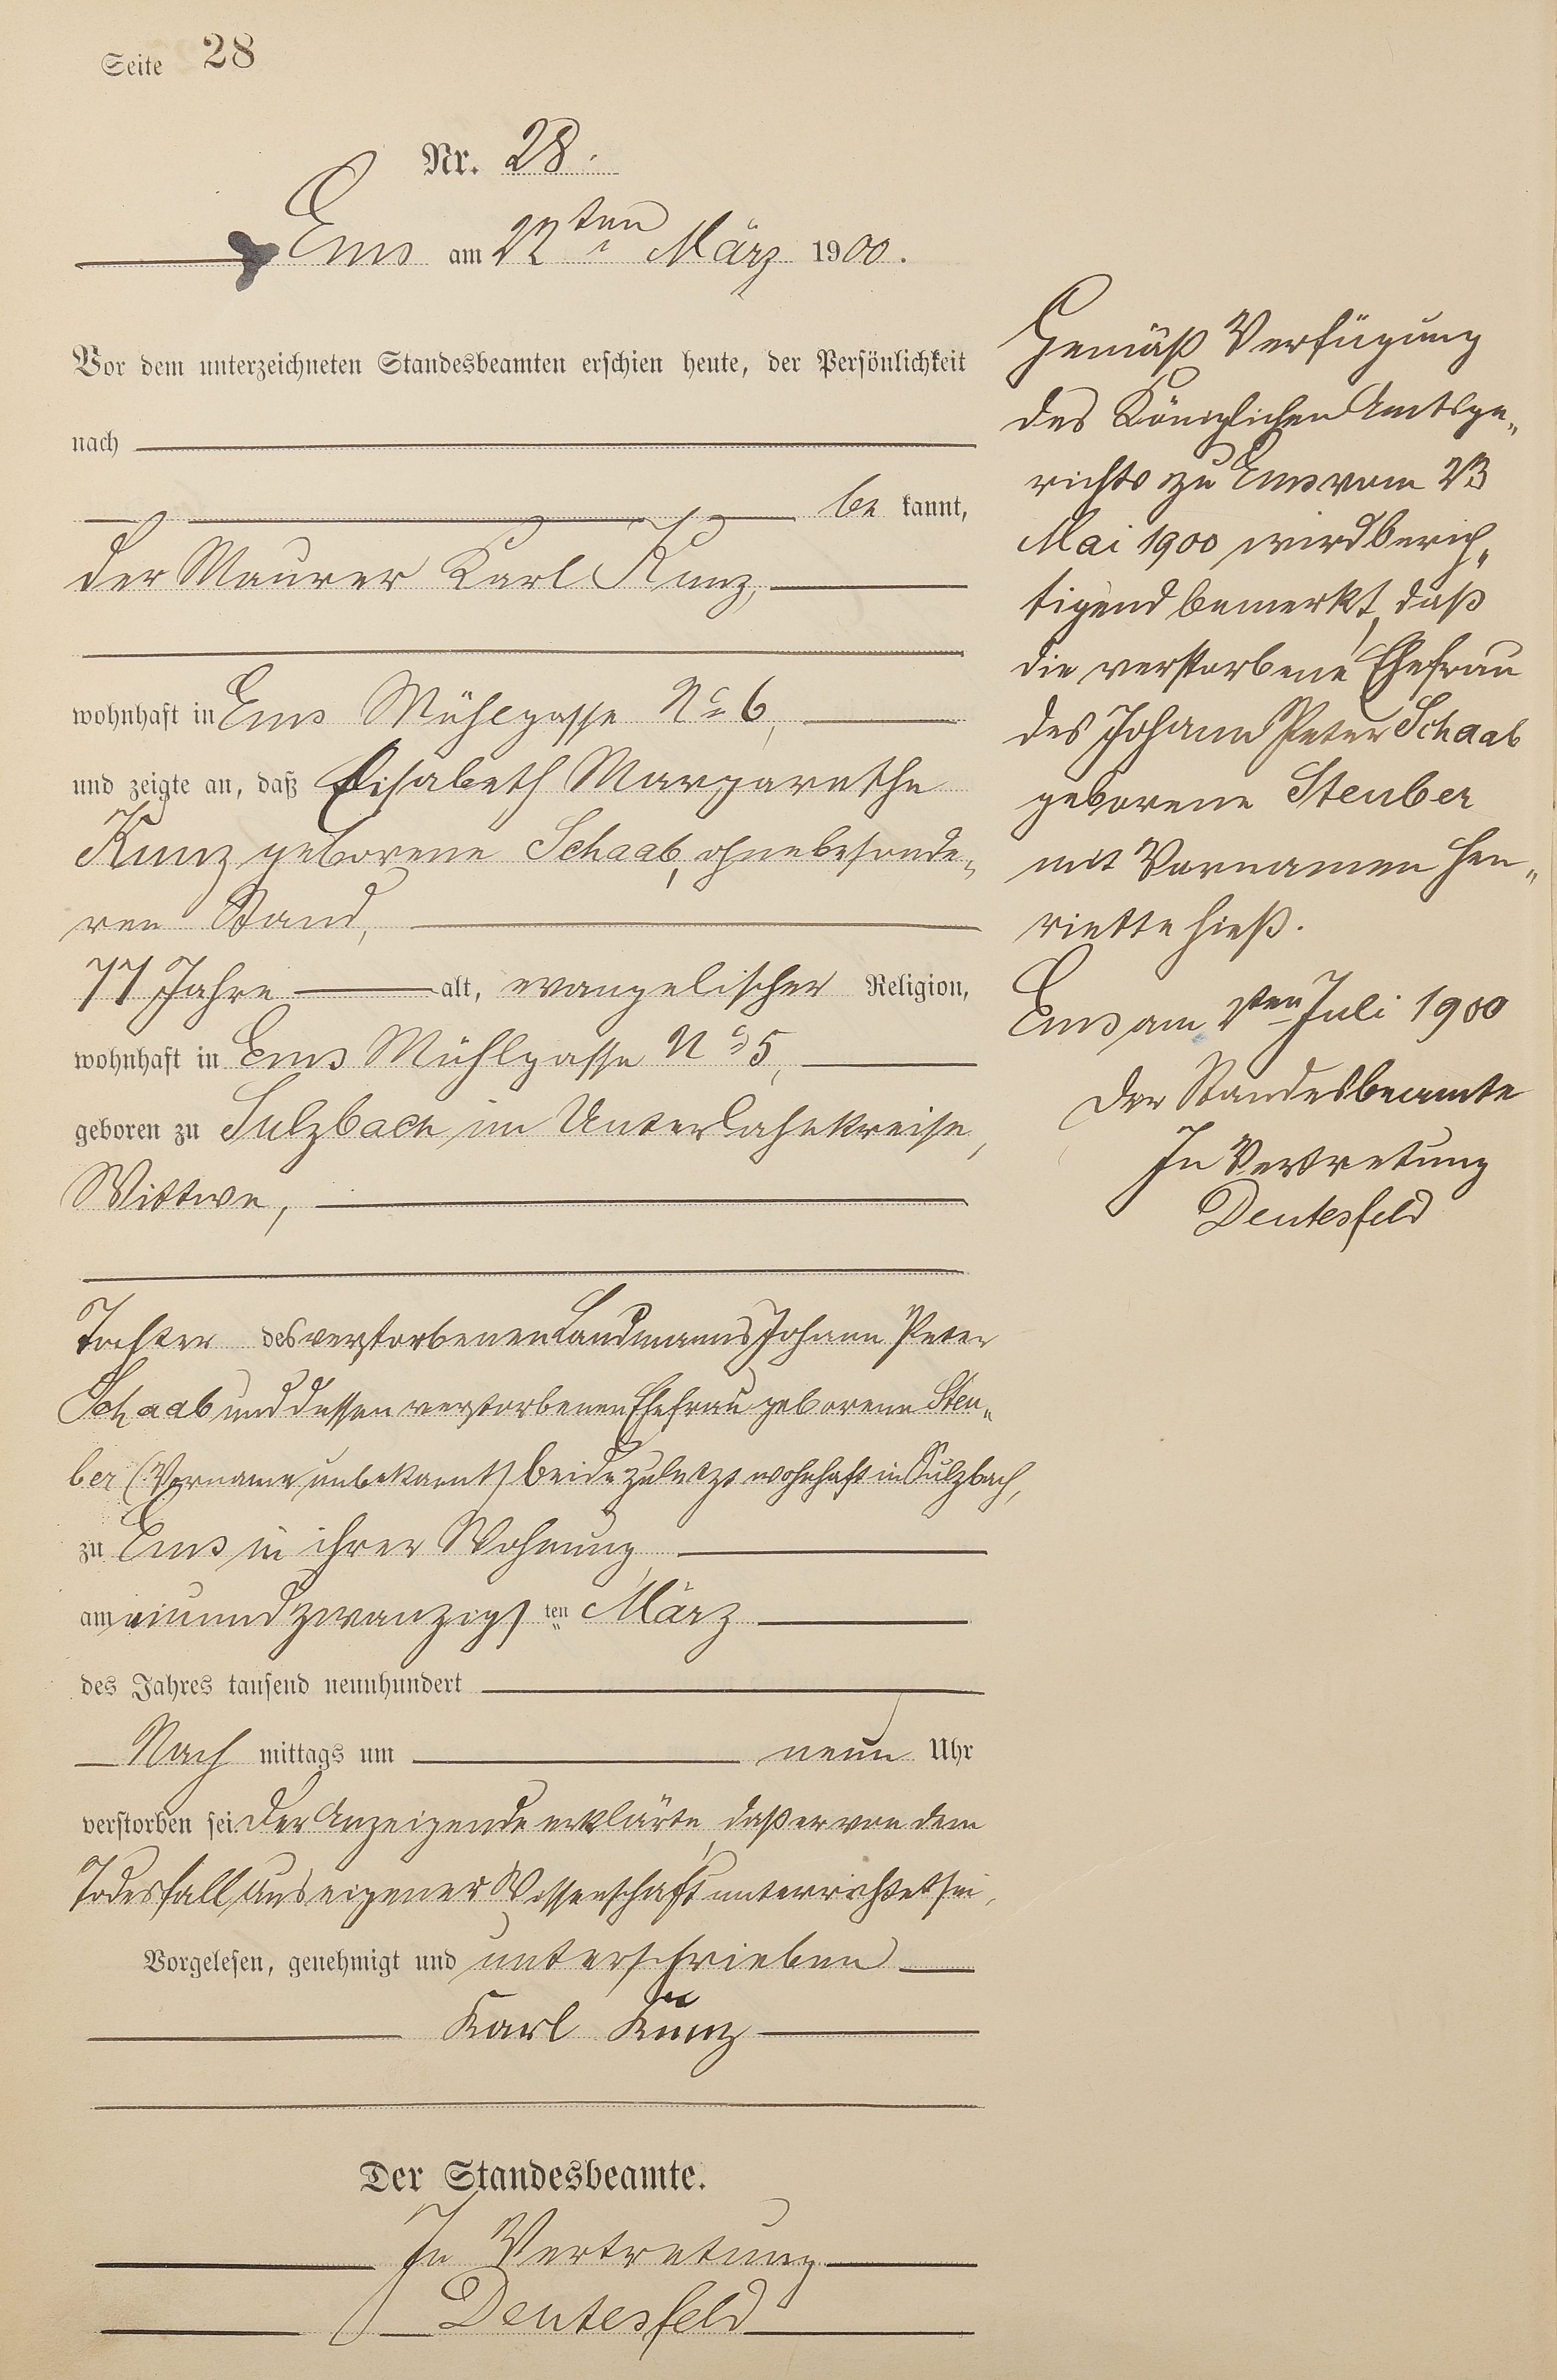 Seite 28
Nr. 28.
Ems am 22ten März 1900.
Vor dem unterzeichneten Standesbeamten erschien heute, der Persönlichkeit
nach
be kannt,
der Maurer Karl Kunz,
wohnhaft in Ems Mühlgasse No 6,
und zeigte an, daß Elisabeth Margarethe
Kunz geborene Schaab, ohne besonde„
ren Stand,
77 Jahre alt, evangelischer Religion,
wohnhaft in Ems Mühlgasse No 5,
geboren zu Sulzbach im Unterlahnkreise,
Wittwe,
Tochter des verstorbenen Landmanns Johann Peter
Schaab und dessen verstorbenen Ehefrau geborene Steu„
ber (Vorname unbekannt) beide zuletzt wohnhaft in Sulzbach,
zu Ems in ihrer Wohnung
am einundzwanzigsten März
des Jahres tausend neunhundert
Nach mittags um neun Uhr
verstorben sei. Der Anzeigende erklärte, daß er von dem
Todesfall aus eigener Wissenschaft unterrichtet sei.
Vorgelesen, genehmigt und unterschrieben
Karl Kunz
Der Standesbeamte.
In Vertretung
Deutesfeld
Gemäß Verfügung
des Königlichen Amtsge„
richts zu Ems vom 23
Mai 1900 wird berich„
tigend bemerkt, daß
die verstorbene Ehefrau
des Johann Peter Schaab
geborene Steuber
mit Vornamen Hen„
riette hieß.
Ems am 2ten Juli 1900
Der Standesbeamte
In Vertretung
Deutesfeld